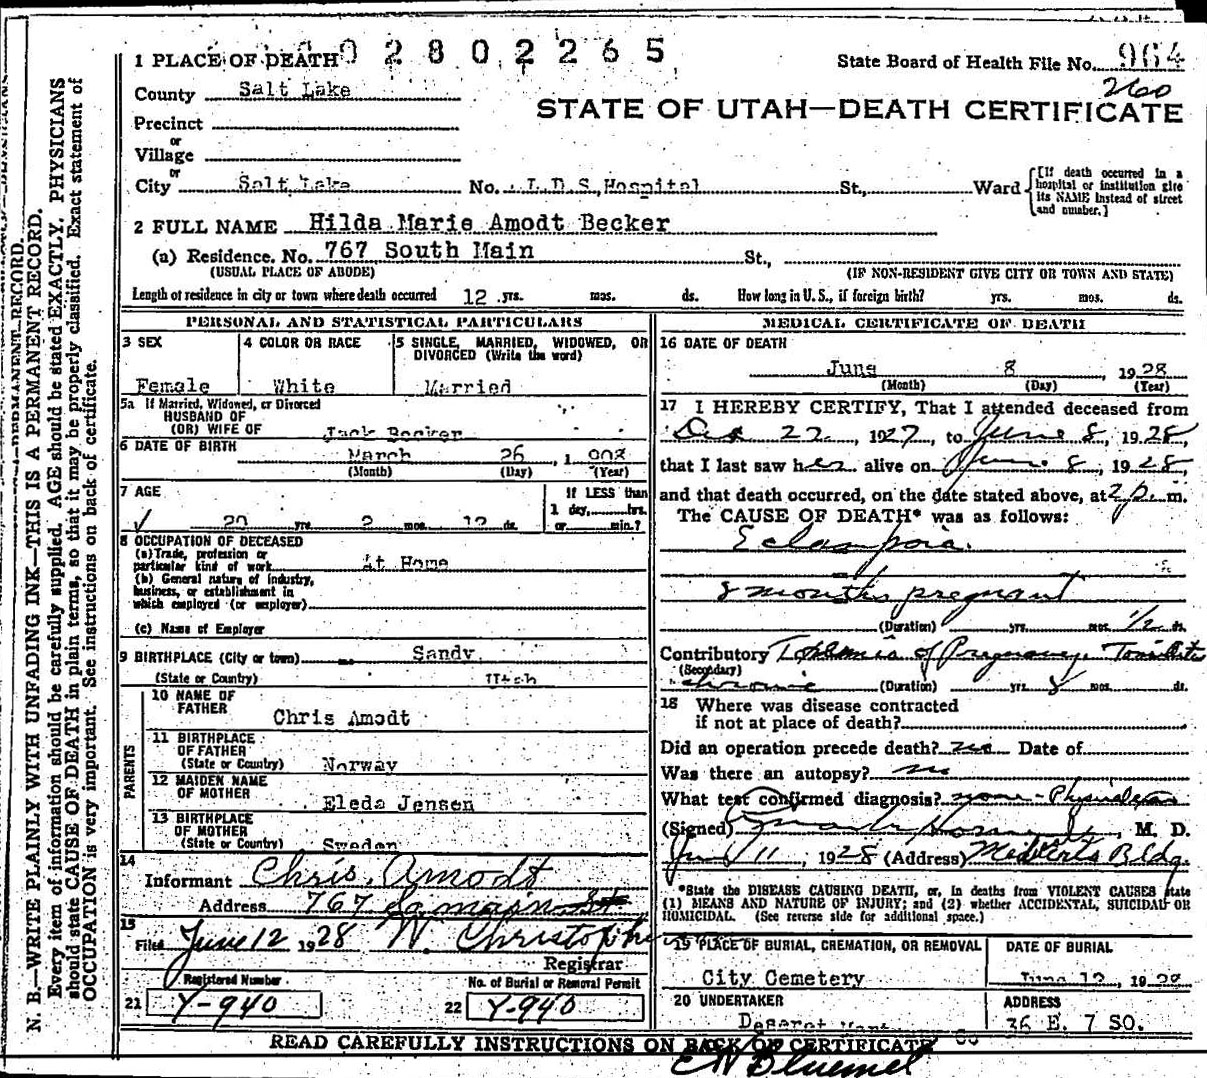 02802265
1 PLACE OF DEATH
State Board of Health File No. 964
260
County Salt Lake
STATE OF UTAH—DEATH CERTIFICATE
Precinct
or
Village
or
City Salt Lake No. L.D.S. Hospital St., Ward
[If death occurred in a hospital or institution give its NAME instead of street and number.]
2 FULL NAME Hilda Marie Amodt Becker
(a) Residence. No. 767 South Main St.,
(USUAL PLACE OF ABODE) (IF NON-RESIDENT GIVE CITY OR TOWN AND STATE)
Length of residence in city or town where death occurred 12 yrs. mos. ds. How long in U. S., if foreign birth? yrs. mos. ds.
PERSONAL AND STATISTICAL PARTICULARS
3 SEX
Female
4 COLOR OR RACE
White
5 SINGLE, MARRIED, WIDOWED, OR
DIVORCED (Write the word)
Married
5a If Married, Widowed, or Divorced
HUSBAND OF
(OR) WIFE OF Jack Becker
6 DATE OF BIRTH March 26, 1 908
(Month) (Day) (Year)
7 AGE
20 yrs. 2 mos. 12 ds.
If LESS than
1 day, hrs.
or min.?
8 OCCUPATION OF DECEASED
(a) Trade, profession or
particular kind of work At Home
(b) General nature of industry,
business, or establishment in
which employed (or employer)
(c) Name of Employer
9 BIRTHPLACE (City or town) Sandy
(State or Country) Utah
PARENTS
10 NAME OF
FATHER Chris Amodt
11 BIRTHPLACE
OF FATHER
(State or Country) Norway
12 MAIDEN NAME
OF MOTHER Eleda Jensen
13 BIRTHPLACE
OF MOTHER
(State or Country) Sweden
14
Informant Chris. Amodt
Address 767 So main St
15
Filed June 12 1928 W. Christoph
Registrar
Registered Number
21 Y-940
No. of Burial or Removal Permit
22 Y-940
MEDICAL CERTIFICATE OF DEATH
16 DATE OF DEATH
June 8, 1928
(Month) (Day) (Year)
17 I HEREBY CERTIFY, That I attended deceased from
Dec 22, 1927, to June 8, 1928,
that I last saw her alive on June 8, 1928,
and that death occurred, on the date stated above, at 2 p. m.
The CAUSE OF DEATH* was as follows:
Eclampsia.
8 months pregnant
(Duration) yrs. mos. 1/2 ds.
Contributory Toxemia of Pregnancy. Tonsilitis
(Secondary)
chronic (Duration) yrs. 8 mos. ds.
18 Where was disease contracted
if not at place of death?
Did an operation precede death? no Date of
Was there an autopsy? no
What test confirmed diagnosis? none-Physicians
(Signed) , M. D.
Jun 11, 1928 (Address) Bldg.
*State the DISEASE CAUSING DEATH, or, in deaths from VIOLENT CAUSES state
(1) MEANS AND NATURE OF INJURY; and (2) whether ACCIDENTAL, SUICIDAL OR
HOMICIDAL. (See reverse side for additional space.)
19 PLACE OF BURIAL, CREMATION, OR REMOVAL
City Cemetery
DATE OF BURIAL
June 12, 1928
20 UNDERTAKER
Deseret Mort Co
ADDRESS
36 E. 7 SO.
READ CAREFULLY INSTRUCTIONS ON BACK OF CERTIFICATE
E W Bluemel
N. B.—WRITE PLAINLY WITH UNFADING INK—THIS IS A PERMANENT RECORD.
Every item of information should be carefully supplied. AGE should be stated EXACTLY. PHYSICIANS
should state CAUSE OF DEATH in plain terms, so that it may be properly classified. Exact statement of
OCCUPATION is very important. See instructions on back of certificate.